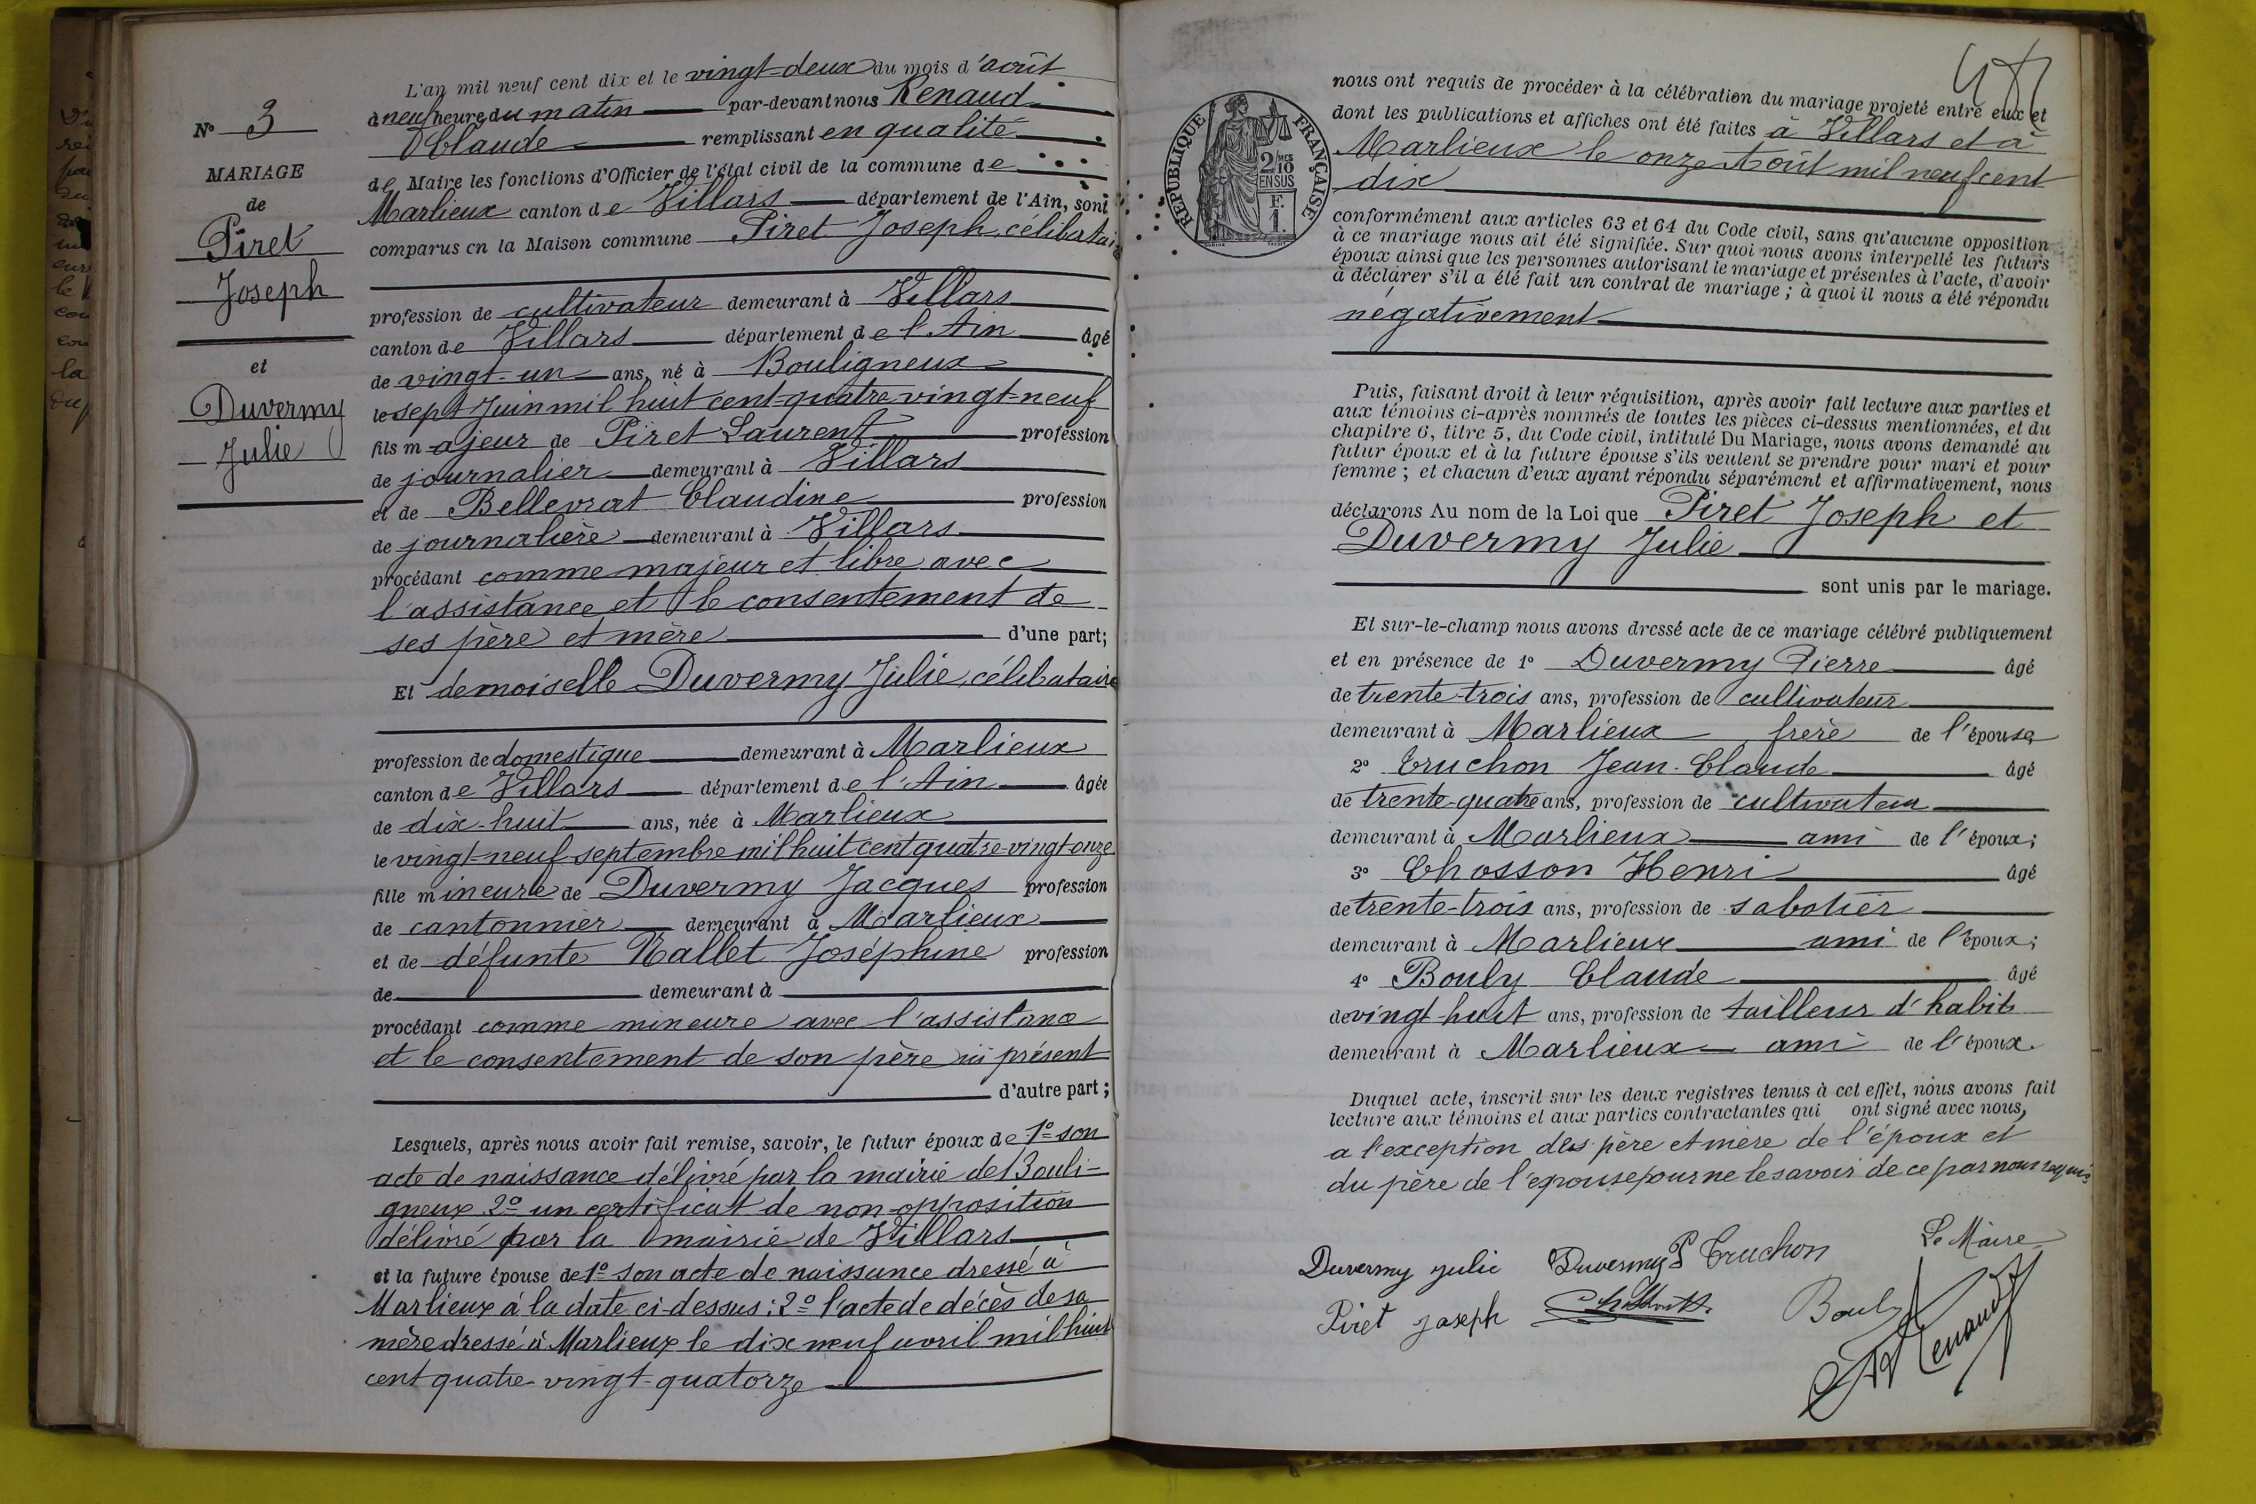 N° 3
MARIAGE
de
Piret
Joseph
et
Duvermy
Julie
L'an mil neuf cent dix et le vingt-deux du mois d'août
à neuf heure du matin par-devant nous Renaud
Claude remplissant en qualité
de Maire les fonctions d'Officier de l'état civil de la commune de
Marlieux canton de Villars département de l'Ain, sont
comparus en la Maison commune Piret Joseph, célibataire
profession de cultivateur demeurant à Villars
canton de Villars département de l'Ain âgé
de vingt-un ans, né à Bouligneux
le sept Juin mil huit cent quatre vingt-neuf
fils majeur de Piret Laurent profession
de journalier demeurant à Villars
et de Bellevrat Claudine profession
de journalière demeurant à Villars
procédant comme majeur et libre avec
l'assistance et le consentement de
ses père et mère d'une part;
Et demoiselle Duvermy Julie, célibataire
profession de domestique demeurant à Marlieux
canton de Villars département de l'Ain âgée
de dix-huit ans, née à Marlieux
le vingt-neuf septembre mil huit cent quatre-vingt-onze
fille mineure de Duvermy Jacques profession
de cantonnier demeurant à Marlieux
et de défunte Nallet Joséphine profession
de demeurant à
procédant comme mineure avec l'assistance
et le consentement de son père ici présent
d'autre part;
Lesquels, après nous avoir fait remise, savoir, le futur époux de 1° son
acte de naissance délivré par la mairie de Bouli=
gneux 2° un certificat de non-opposition
délivré par la mairie de Villars
et la future épouse de 1° son acte de naissance dressé à
Marlieux à la date ci-dessus; 2° l'acte de décès de sa
mère dressé à Marlieux le dix neuf avril mil huit
cent quatre-vingt-quatorze
RÉPUBLIQUE FRANÇAISE
2/10MES
EN SUS
F.
1.
nous ont requis de procéder à la célébration du mariage projeté entre eux et
dont les publications et affiches ont été faites à Villars et à
Marlieux le onze Août mil neuf cent
dix
conformément aux articles 63 et 64 du Code civil, sans qu'aucune opposition
à ce mariage nous ait été signifiée. Sur quoi nous avons interpellé les futurs
époux ainsi que les personnes autorisant le mariage et présentes à l'acte, d'avoir
à déclarer s'il a été fait un contrat de mariage; à quoi il nous a été répondu
négativement
Puis, faisant droit à leur réquisition, après avoir fait lecture aux parties et
aux témoins ci-après nommés de toutes les pièces ci-dessus mentionnées, et du
chapitre 6, titre 5, du Code civil, intitulé Du Mariage, nous avons demandé au
futur époux et à la future épouse s'ils veulent se prendre pour mari et pour
femme; et chacun d'eux ayant répondu séparément et affirmativement, nous
déclarons Au nom de la Loi que Piret Joseph et
Duvermy Julie
sont unis par le mariage.
Et sur-le-champ nous avons dressé acte de ce mariage célébré publiquement
et en présence de 1° Duvermy Pierre âgé
de trente-trois ans, profession de cultivateur
demeurant à Marlieux frère de l'épouse
2° Truchon Jean-Claude âgé
de trente-quatre ans, profession de cultivateur
demeurant à Marlieux ami de l'époux;
3° Chosson Henri âgé
de trente-trois ans, profession de sabotier
demeurant à Marlieux ami de l'époux;
4° Bouly Claude âgé
de vingt-huit ans, profession de tailleur d'habits
demeurant à Marlieux ami de l'époux.
Duquel acte, inscrit sur les deux registres tenus à cet effet, nous avons fait
lecture aux témoins et aux parties contractantes qui ont signé avec nous,
a l'exception des père et mère de l'époux et
du père de l'épouse pour ne le savoir de ce par nous requis
Duvermy julie Duvermy P Truchon Le Maire
Piret joseph Bouly Renaud